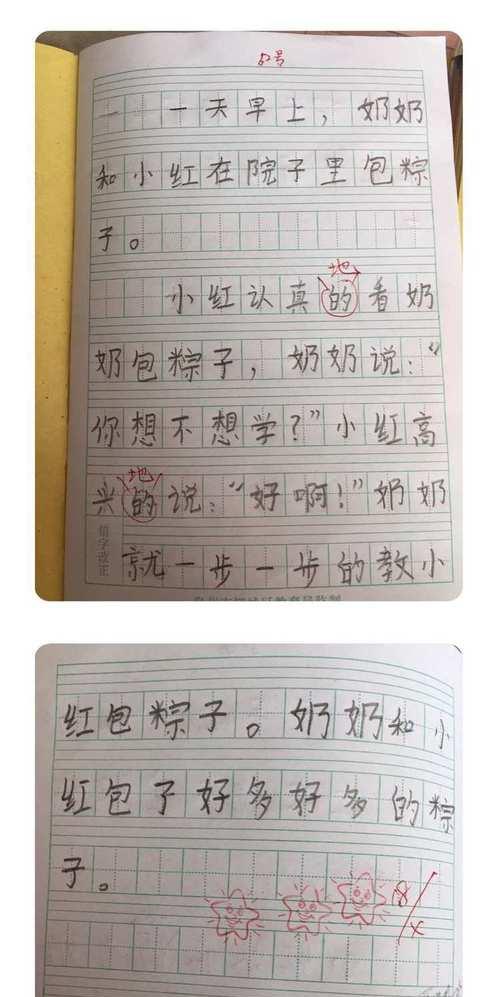 52号
一天早上，奶奶
和小红在院子里包粽
子。
地
小红认真的看奶
奶包粽子，奶奶说：“
你想不想学？”小红高
地
兴的说：“好啊！”奶奶
错字改正
就一步一步的教小
红包粽子。奶奶和小
红包了好多好多的粽
子。